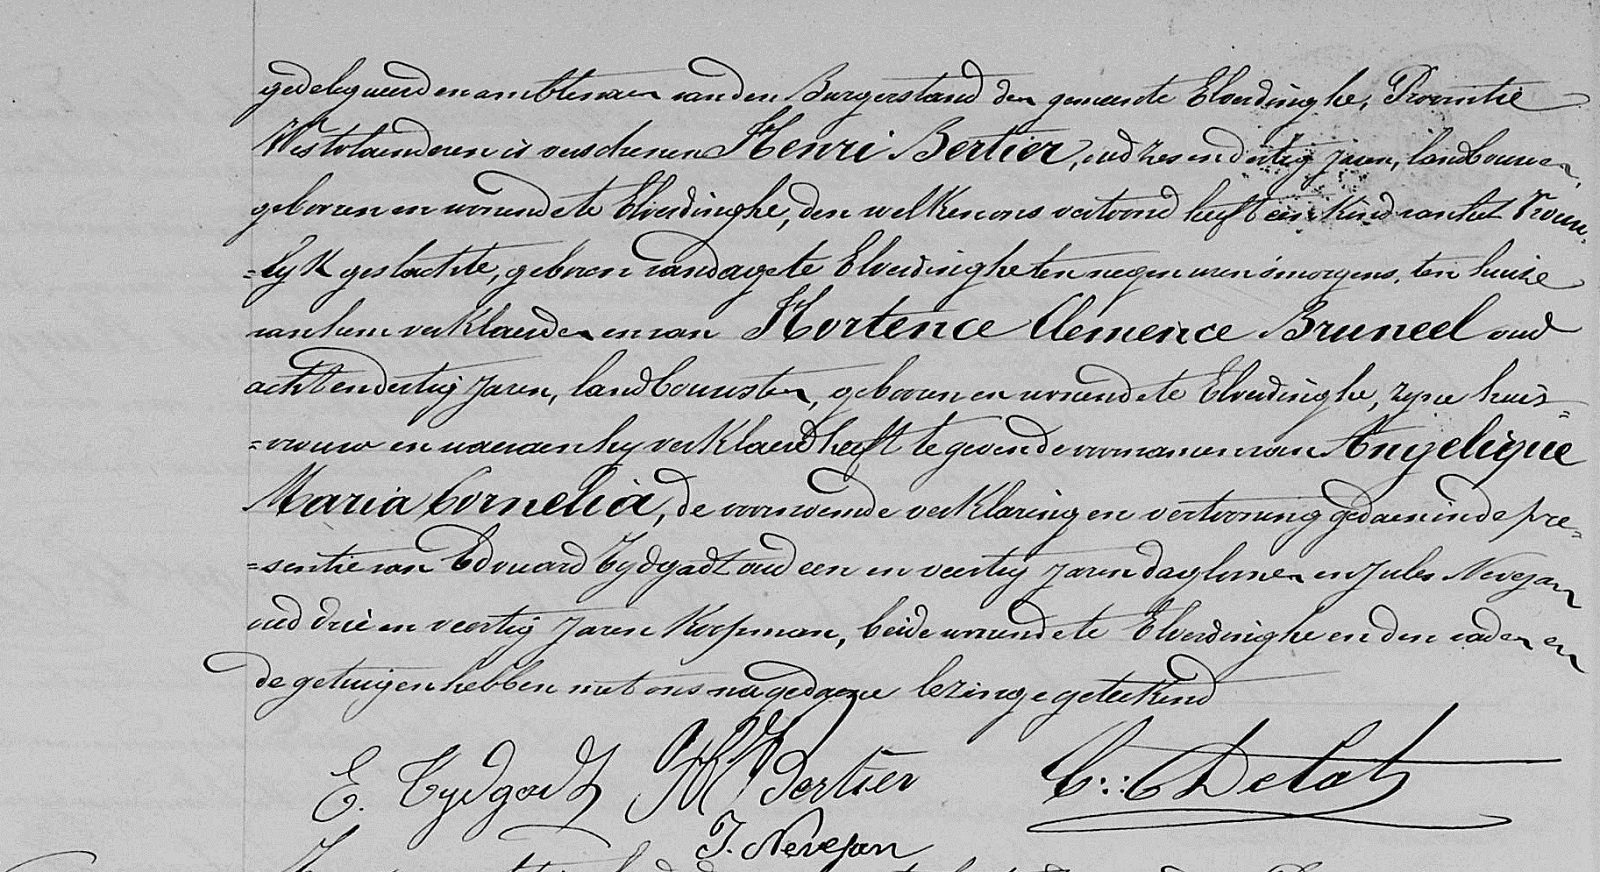 gedelegueerden ambtenaer van den Burgerstand der gemeente Elverdinghe, Provintie
Westvlaenderen is verschenen Henri Bertier, oud zes en dertig jaren, landbouwer,
geboren en wonende te Elverdinghe, den welken ons vertoond heeft een kind van het vrouw-
=lyk geslachte, geboren vandage te Elverdinghe ten negen uren 'smorgens, ten huize
van hem verklaerder en van Hortence Clemence Bruneel oud
acht en dertig jaren, landbouwster, geboren en wonende te Elverdinghe, zyne huis=
=vrouw en waeraen hy verklaerd heeft te geven de voornamen van Angelique
Maria Cornelia, de voornoemde verklaring en vertooning gedaen in de pre=
=sentie van Edouard Tydgadt oud een en veertig jaren dagloner en Jules Nevejan
oud drie en veertig jaren koopman, beide wonende te Elverdinghe en den vader en
de getuigen hebben met ons na gedaene lezinge geteekend
E. Tydgadt H Bertier C. Delat
J. Nevejan